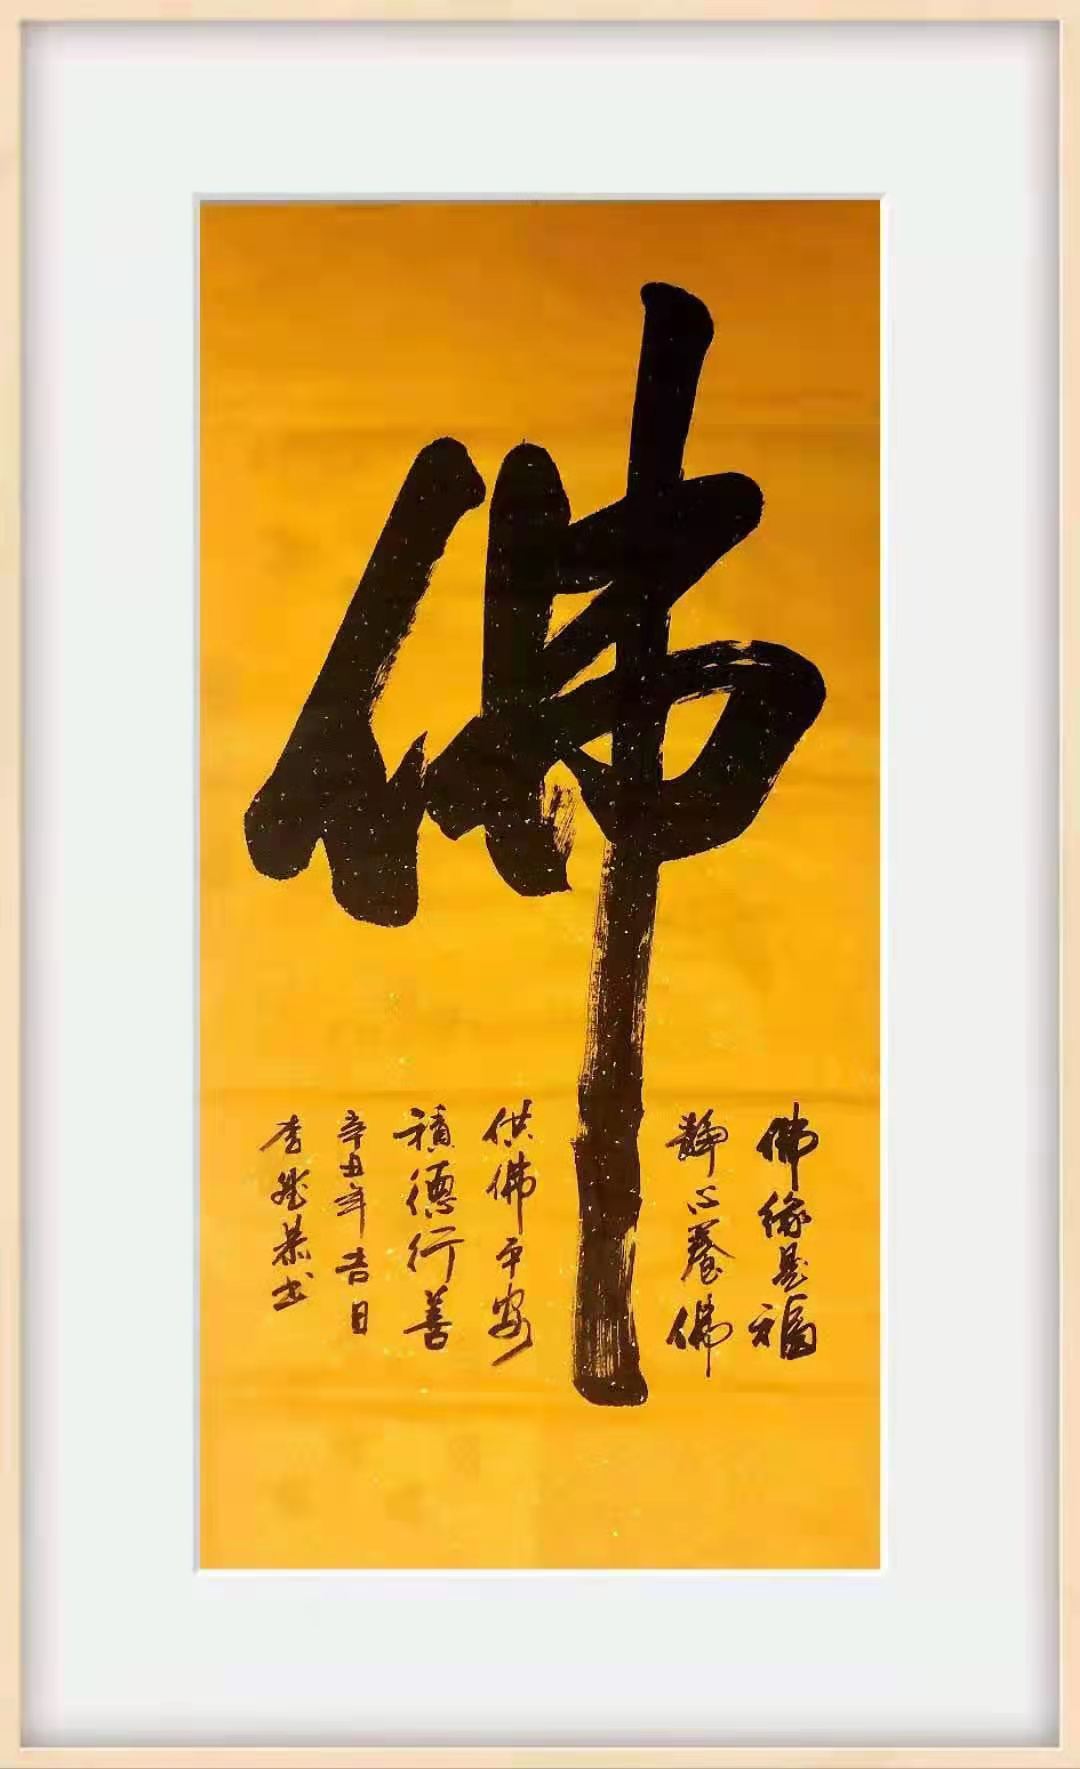 佛
佛缘是福
静心養佛
供佛平安
積德行善
辛丑年吉日
李恭书